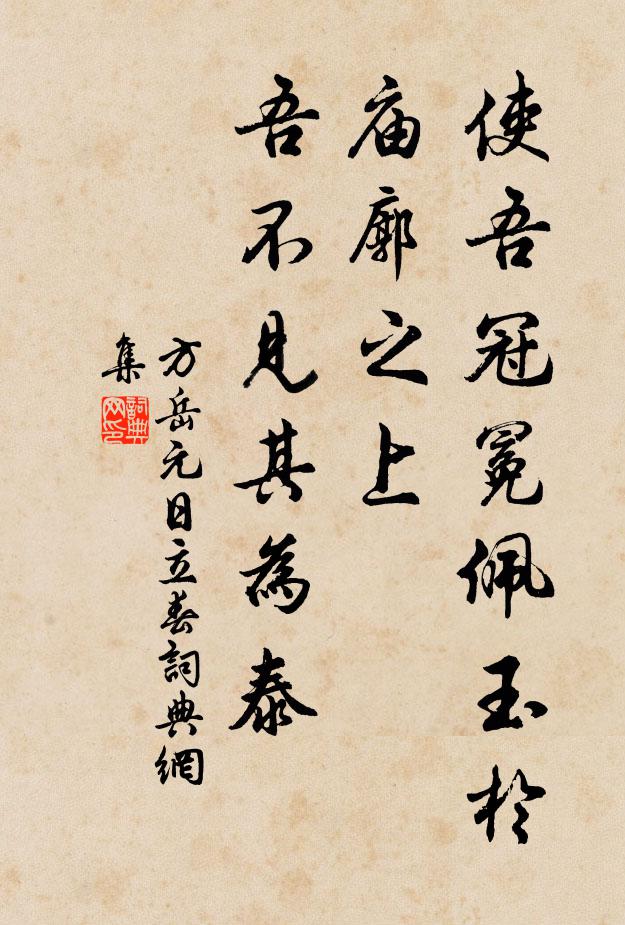 使吾冠冕佩玉於
庙廓之上
吾不見其為泰
方岳元日立春詞典網
集
詞典网印